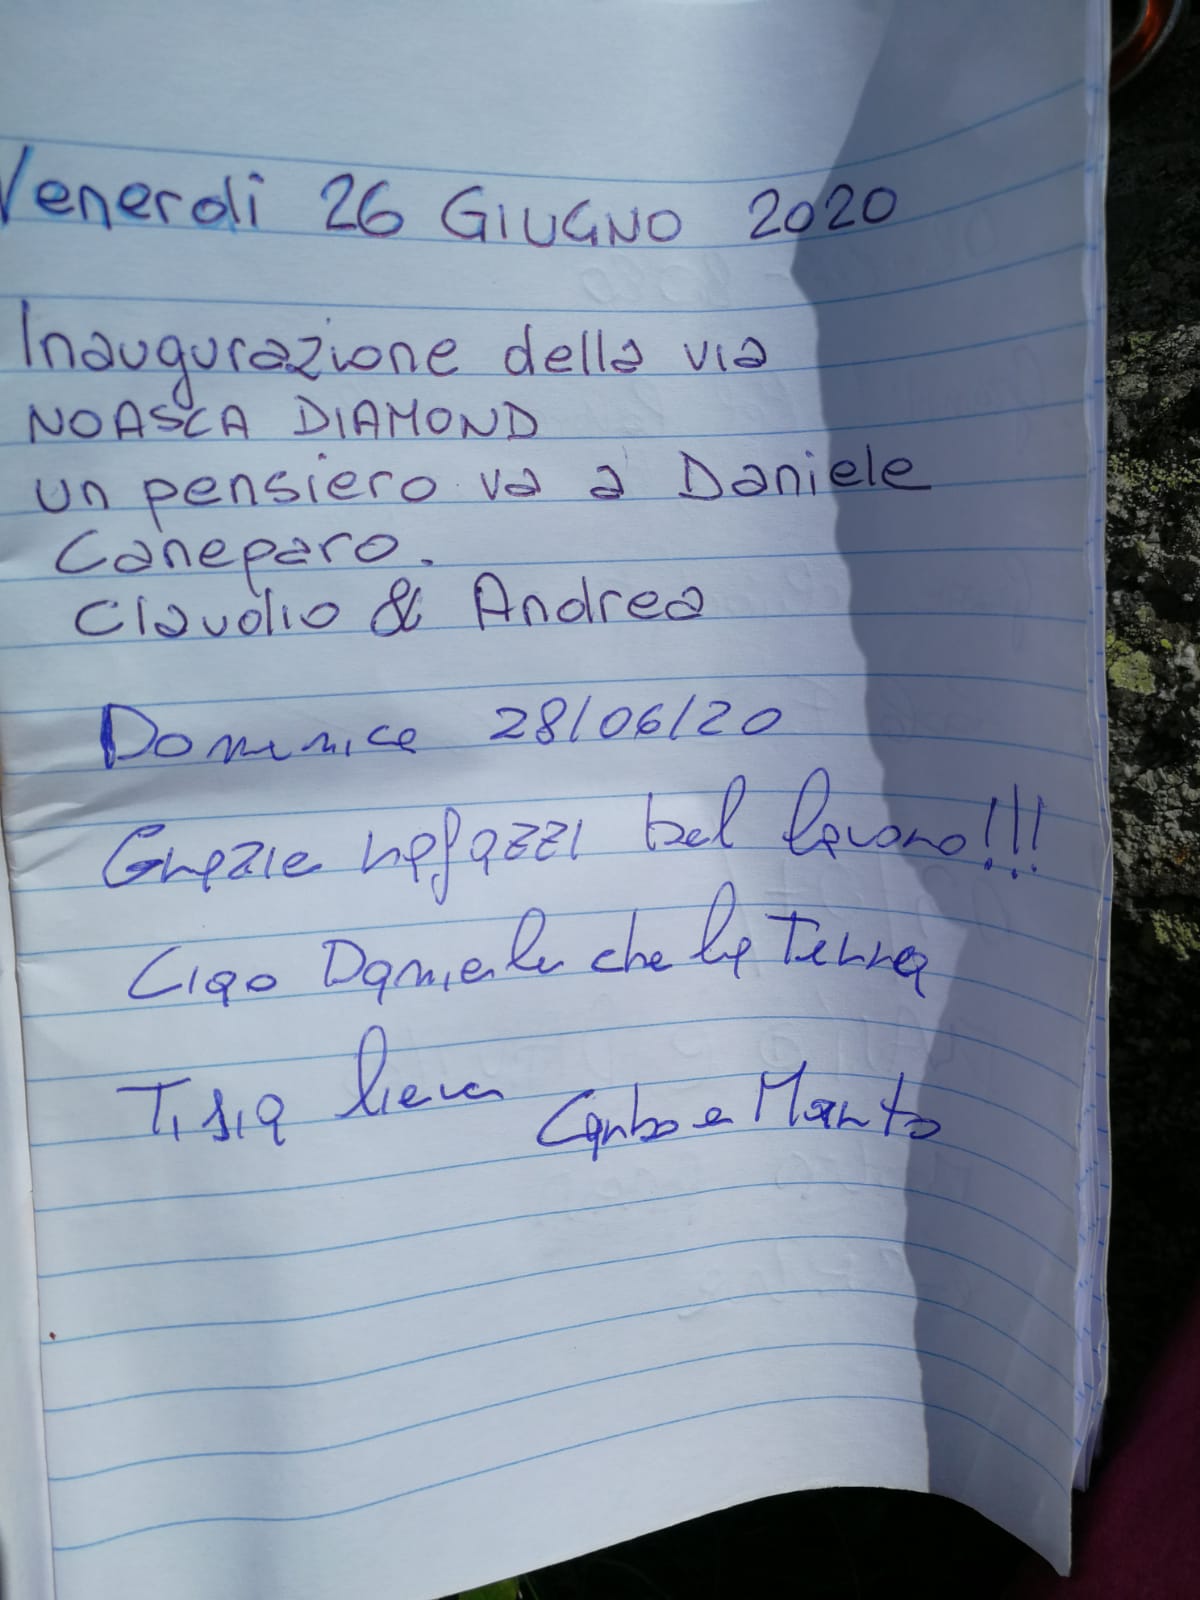 Venerdi 26 GIUGNO 2020
Inaugurazione della via
NOASCA DIAMOND
un pensiero va a Daniele
Caneparo.
Claudio & Andrea
Domenica 28/06/20
Grazie ragazzi bel lavoro!!!
Ciao Daniele che la Terra
Ti sia lieve Carlo e